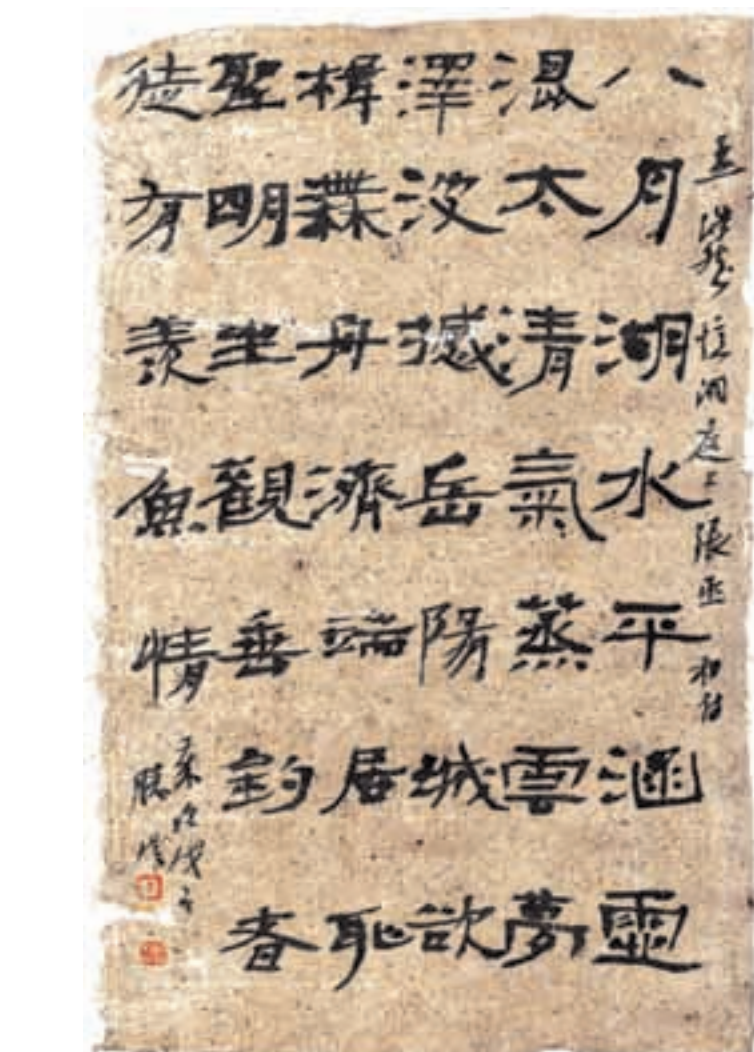 孟浩然憶洞庭上張丞相詩
八月湖水平涵虛
混太清氣蒸雲夢
澤波撼岳陽城欲
楫無舟濟端居耻
聖明坐觀垂釣者
徒有羨魚情
歲次戊子